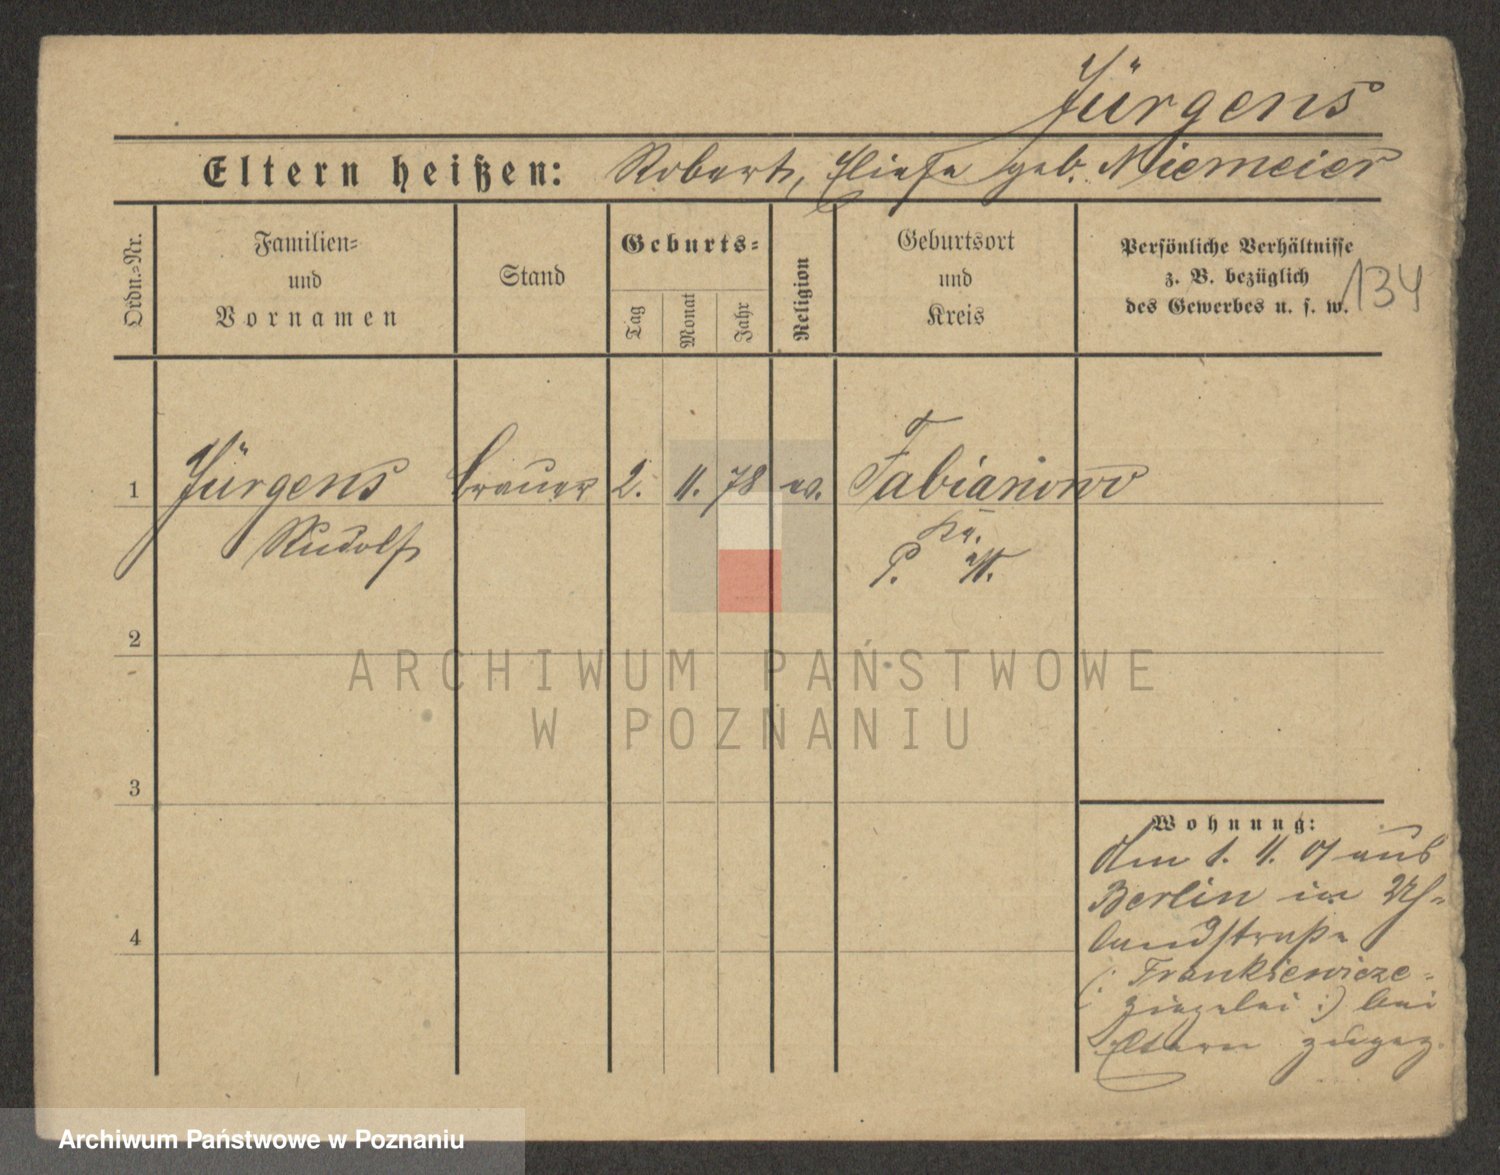 Jürgens
Eltern heißen: Robert, Eliese geb. Niemeier
Ordn.=Nr.
Familien=
und
Vornamen
Stand
Geburts=
Tag
Monat
Jahr
Religion
Geburtsort
und
Kreis
Persönliche Verhältnisse
z. B. bezüglich
des Gewerbes u. s. w.
134
1 Jürgens Brauer 2. 11. 78 ev. Fabianowo
Rudolf
Kr.
P. W.
2
3
4
Wohnung:
Am 1. 11. 07 aus
Berlin in Uh=
landstraße
(: Frankiewicze=
Ziegelei :) bei
Eltern zugez.
ARCHIWUM PAŃSTWOWE
W POZNANIU
Archiwum Państwowe w Poznaniu